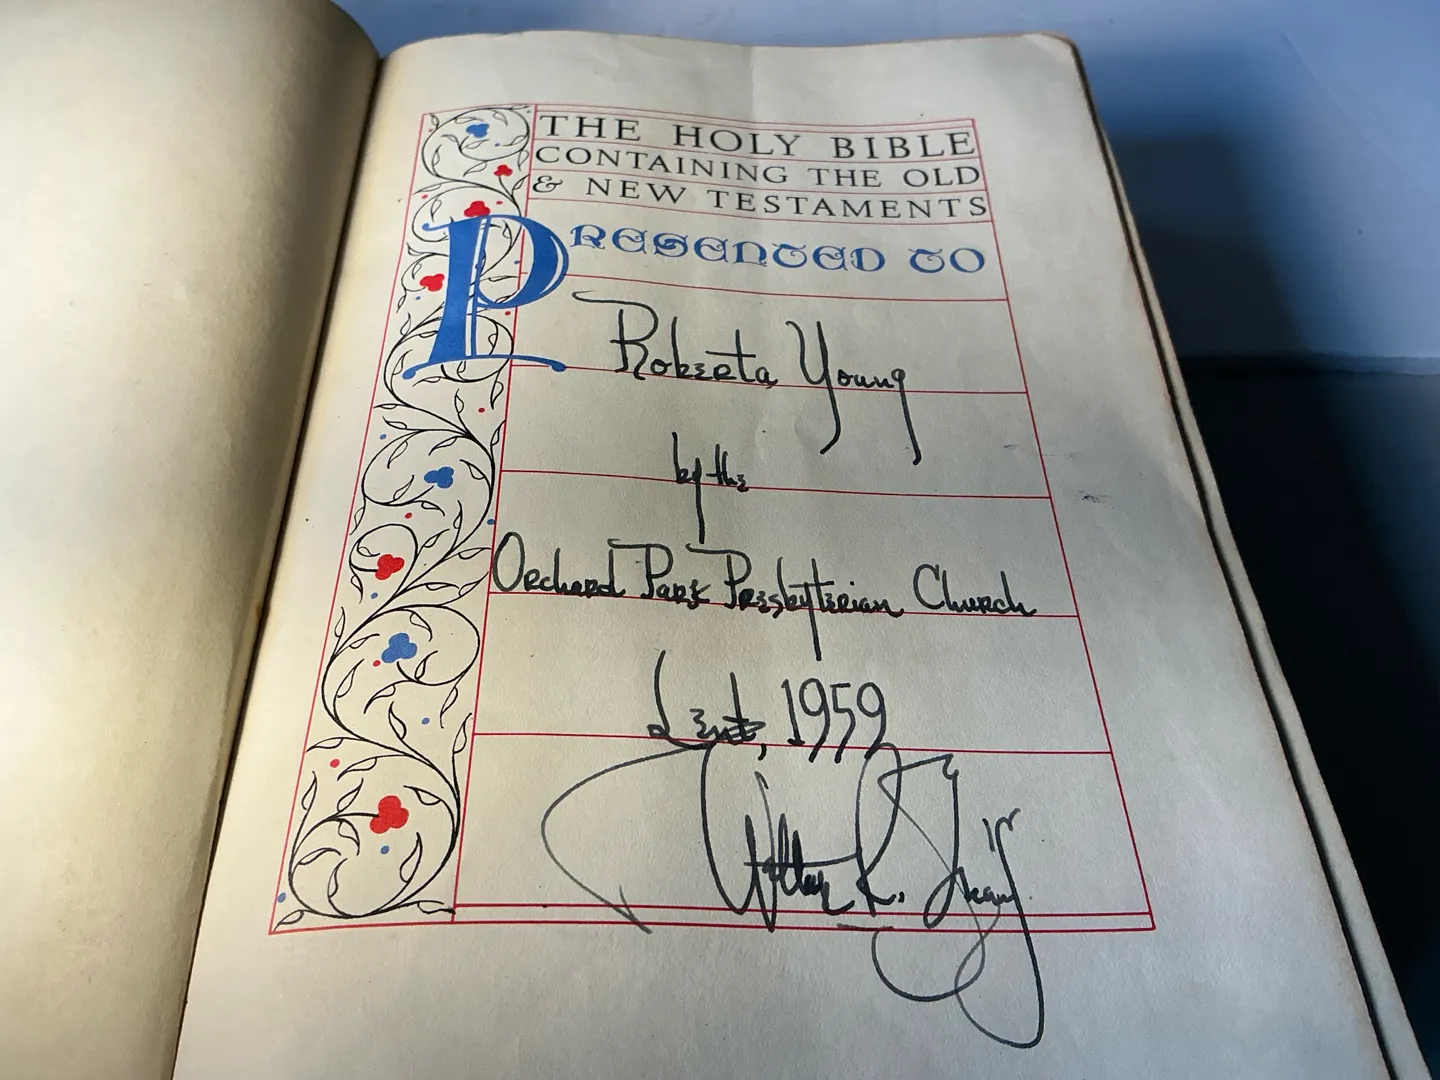 THE HOLY BIBLE
CONTAINING THE OLD
& NEW TESTAMENTS
PRESENTED TO
Roberta Young
by the
Orchard Park Presbyterian Church
Lent, 1959
Walter K.